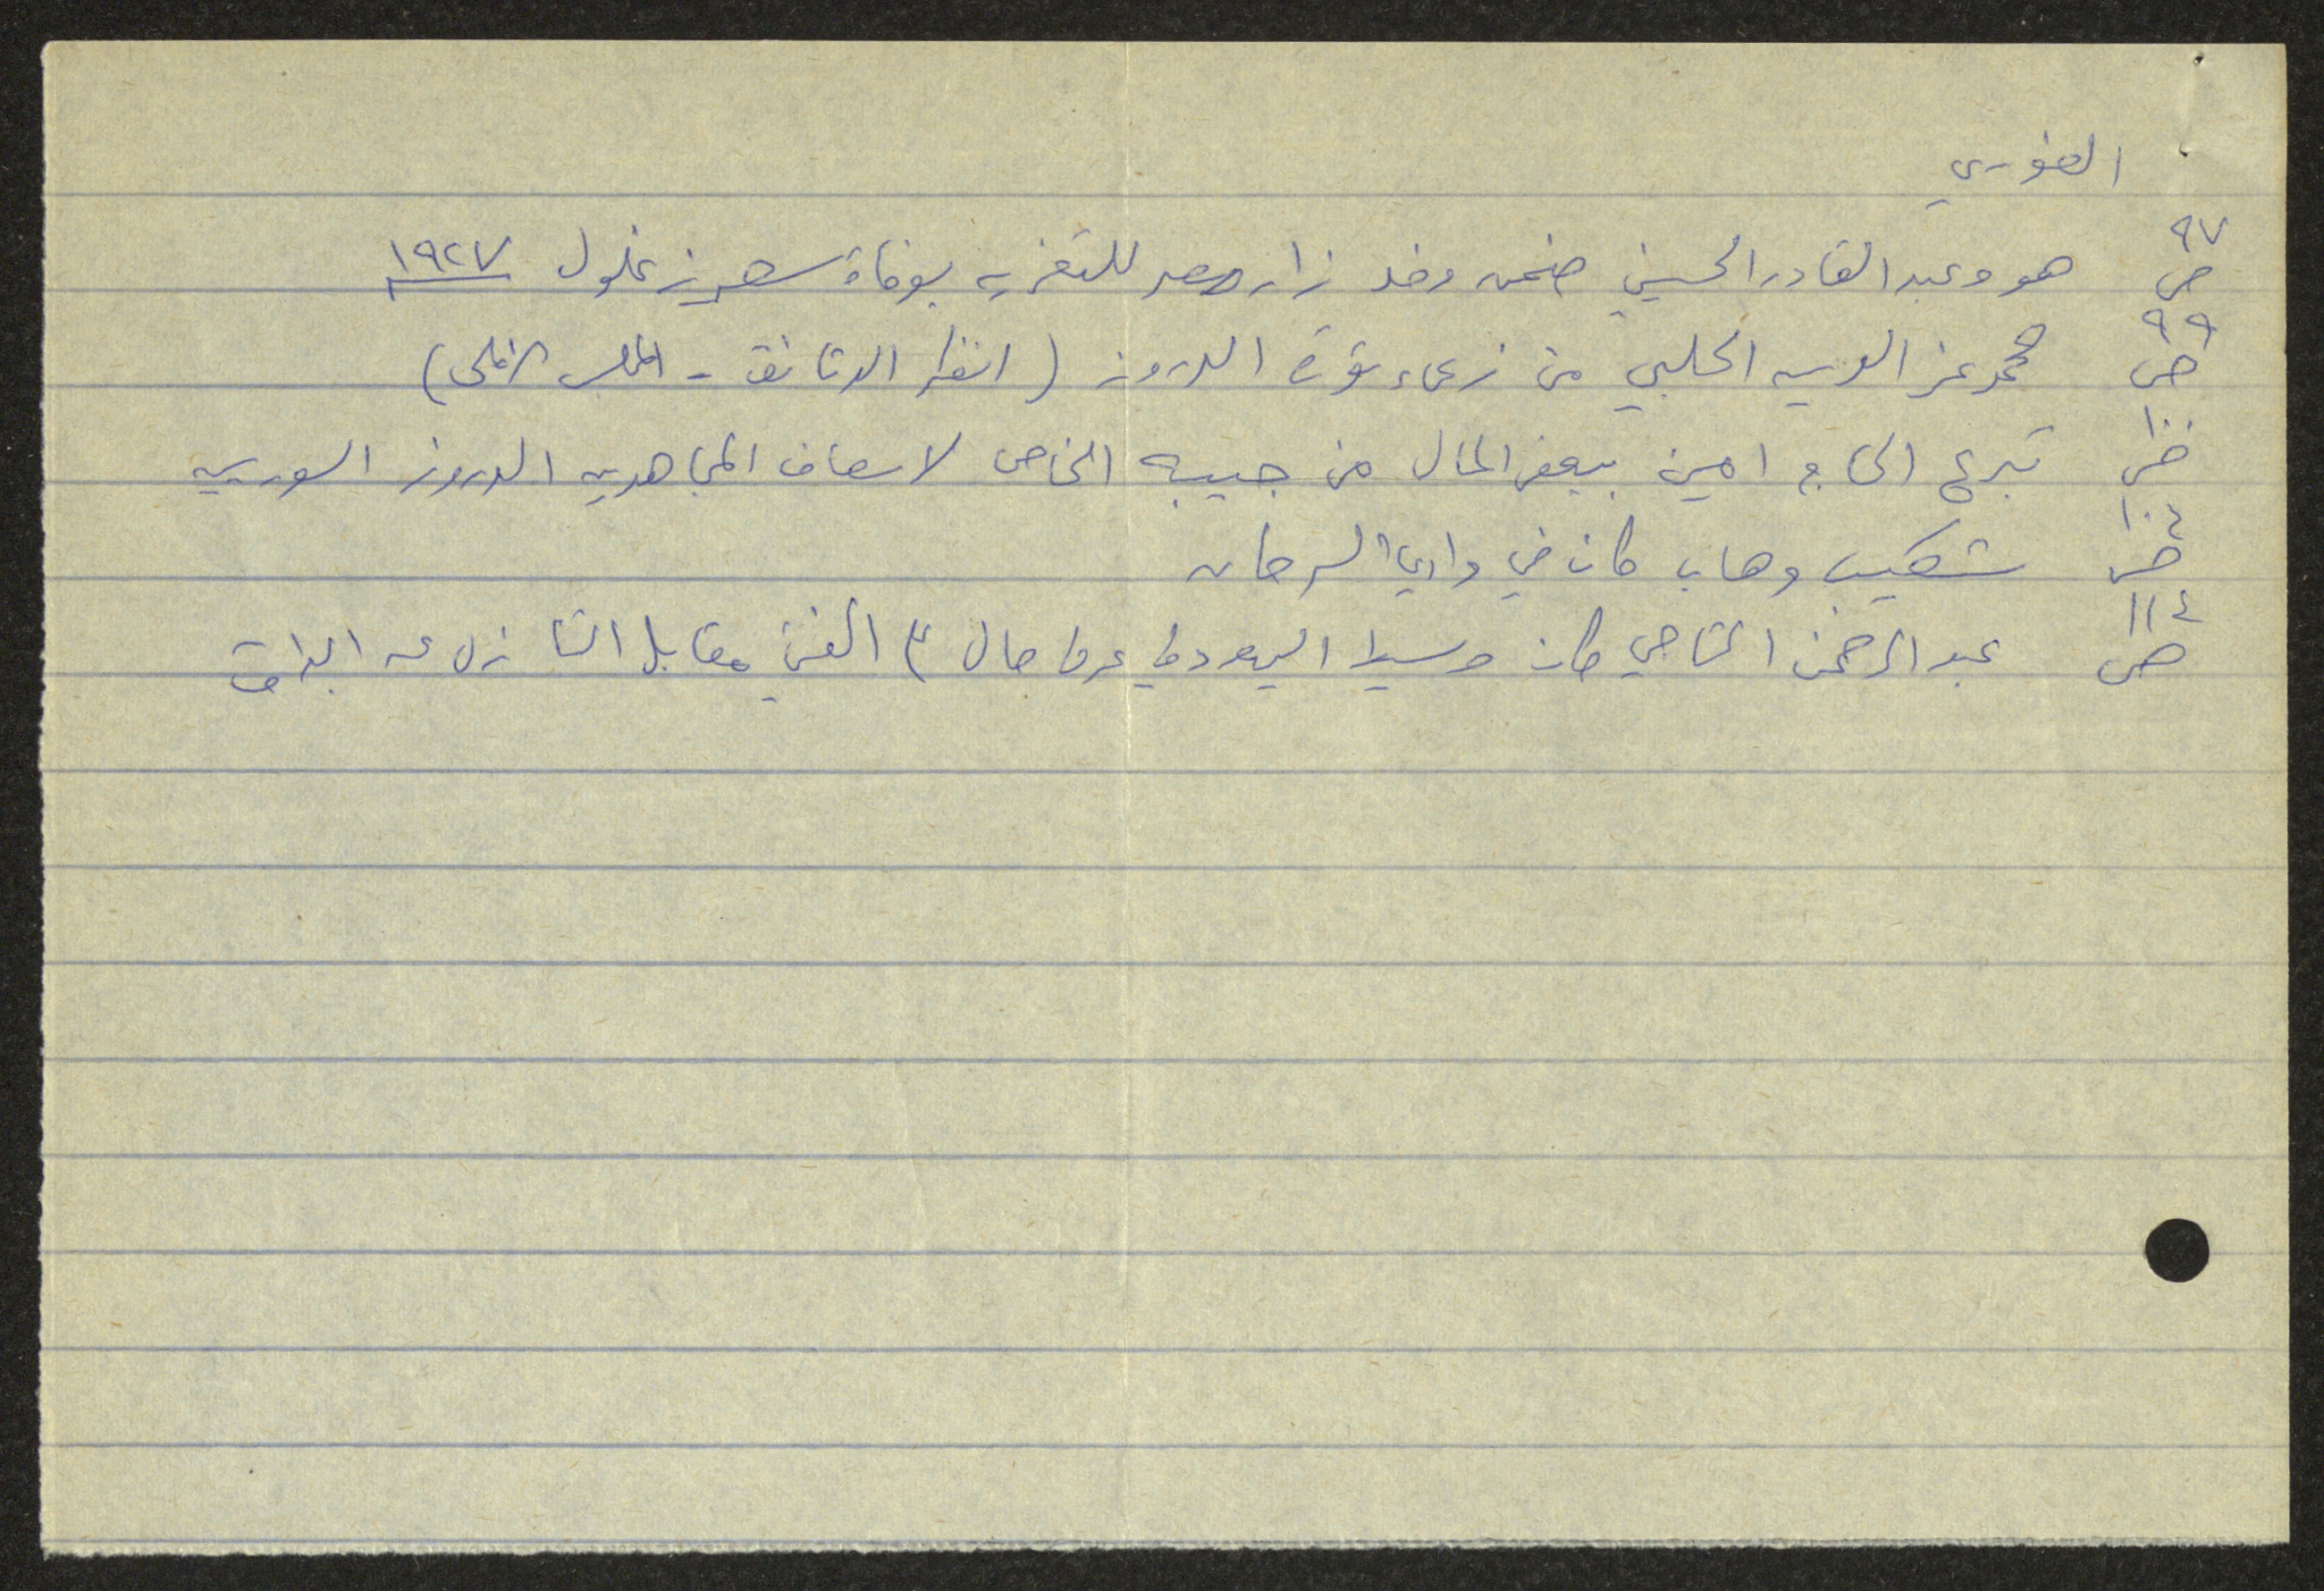 الغوري
ص ٩٧ هو وعبد القادر الحسيني ضمن وفد زار مصر للتعزيه بوفاة سعد زغلول ١٩٢٧
ص ٩٩ محمد عز الدين الحلبي من زعماء ثورة الدروز (انظر الوثائق - المجلس الاعلى)
ص تبرع الحاج امين ببعض المال من جيبه الخاص لاسعاف المجاهدين الدروز السوريين
ص ١٠٤ شكيب وهاب كان في وادي السرحان
ص ١١٤ عبد الرحمن التاجي كان وسيط اليهود في عرض مال مقابل التنازل عن البراق